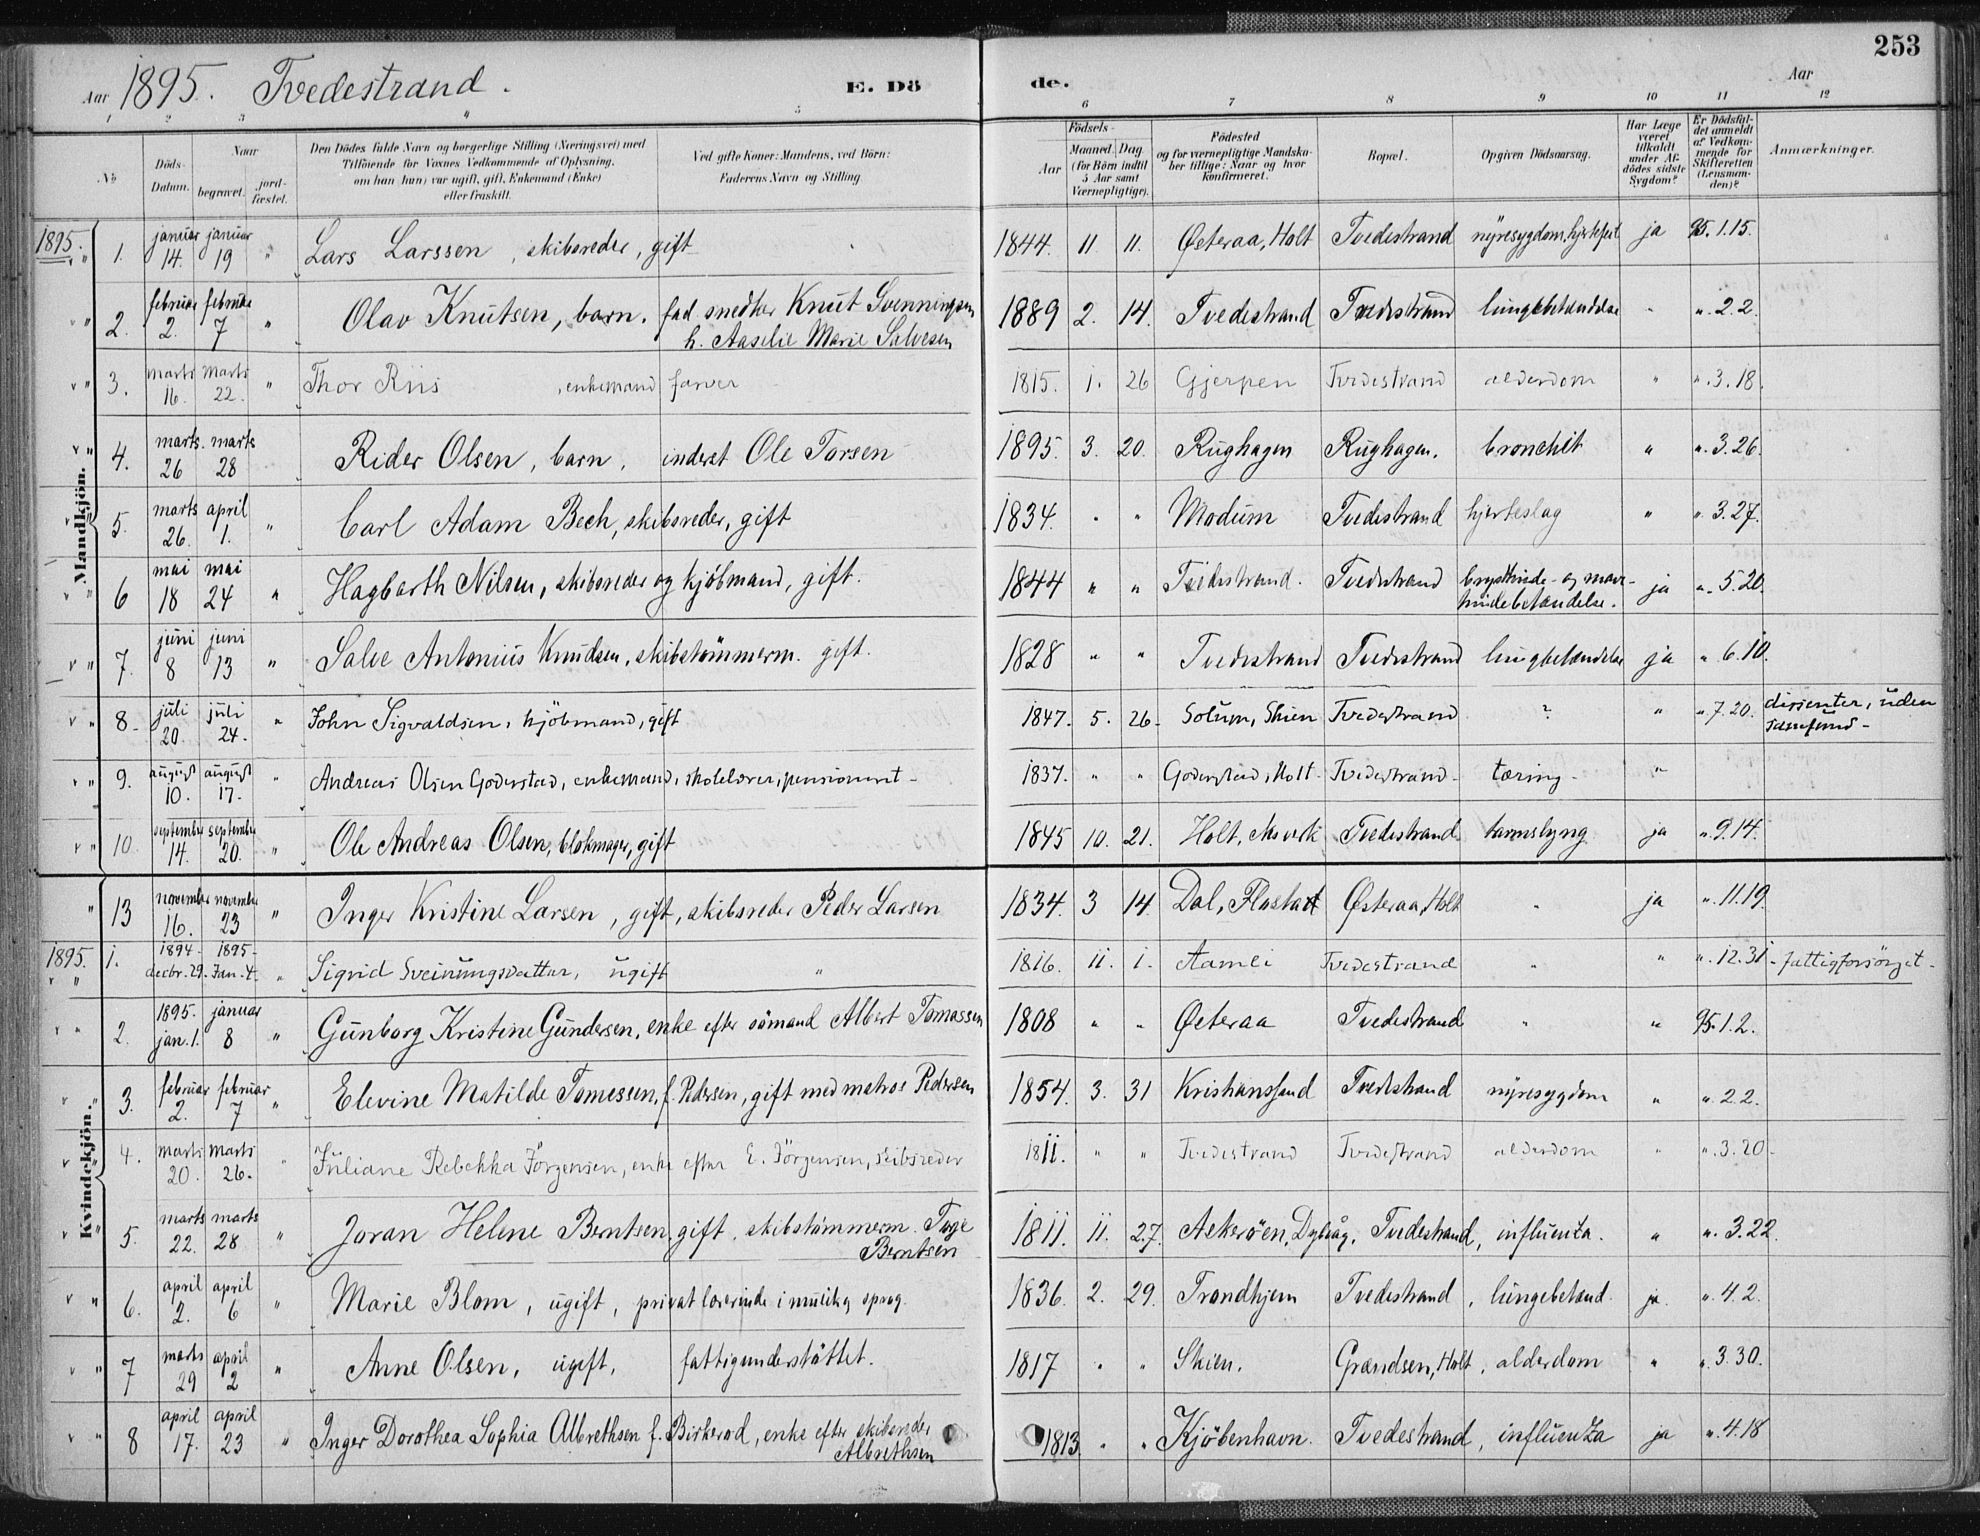 253
Aar 1895. Tvedestrand. E. Dö de. Aar
1 2 3 4 5 6 7 8 9 10 11 12
No Döds-Datum. Naar begravet. jordfæstet. Den Dödes fulde Navn og borgerlige Stilling (Næringsvei) med Tilföiende for Voxnes Vedkommende af Oplysning, om han (hun) var ugift, gift, Enkemand (Enke) eller fraskilt. Ved gifte Koner: Mandens, ved Börn: Faderens Navn og Stilling Födsels- Aar Maaned. Dag. (for Börn indtil 5 Aar samt Værnepligtige). Födested og for værnepligtige Mandskaber tillige: Naar og hvor konfirmeret. Bopæl. Opgiven Dödsaarsag. Har Læge været tilkaldt under Afdödes sidste Sygdom? Er Dödsfaldet anmeldt af Vedkommende for Skifteretten (Lensmanden)? Anmærkninger.
Mandkjön.
1895. " 1. januar 14. januar 19 " Lars Larssen, skibsreder, gift 1844. 11. 11. Østeraa, Holt Tvedestrand nyresygdom, hjertefeil ja 95.1.15.
" 2. februar 2. februar 7 " Olav Knutsen, barn. fad. snedker Knut Svenningsen h. Aaselie Marie Salvesen 1889 2. 14. Tvedestrand Tvedestrand lungebetændelse " ".2.2.
" 3. marts 16. marts 22. " Thor Riis, enkemand farver 1815. 1. 26 Gjerpen Tvedestrand alderdom " ".3.18.
" 4. marts. 26 marts 28 Rider Olsen, barn, inderst Ole Torsen 1895. 3. 20. Rughagen Rughagen. bronchit " ".3.26.
" 5. marts 26. april 1. " Carl Adam Bech, skibsreder, gift 1834. " " Modum Tvedestrand hjerteslag " ".3.27.
" 6 mai 18 mai 24 " Hagbarth Nilsen, skibsreder og kjöbmand, gift. 1844 " " Tvedestrand. Tvedestrand brysthinde- og mavehindebetændelse. ja ".5.20.
" 7. juni 8 juni 13 " Salve Antonius Knudsen, skibstömmerm. gift. 1828 " " Tvedestrand Tvedestrand lungebetændelse ja ".6.10.
" 8. juli 20. juli 24. " John Sigvaldsen, kjöbmand, gift 1847. 5. 26. Solum, Skien Tvedestrand ? " ".7.20. dissenter, uden samfund-
" 9. august 10. august 17. " Andreas Olsen Goderstad, enkemand, skolelærer, pensioneret- 1837. " " Goderstad, Holt. Tvedestrand- tæring- "
" 10. september 14. september 20. " Ole Andreas Olsen, blokmager, gift 1845 10. 21. Holt, Tvedestrand tarmslyng ja ".9.14.
" 13 november 16. november 23 " Inger Kristine Larsen, gift, skibsreder Peder Larsen 1834. 3 14. Dal, Flosta Østeraa, Holt " ja ".11.19.
Kvindekjön.
1895. " 1. 1894- decbr. 29. 1895- Jan. 4. " Sigrid Sveinungsdatter, ugift " 1816. 11. 1. Aamli Tvedestrand " " ".12.31- fattigforsörget-
" 2. 1895. jan. 1. januar 8 " Gunborg Kristine Gundersen, enke efter sömand Albert Tomassen 1808 " " Østeraa Tvedestrand " " 95.1.2.
" 3. februar 2. februar 7 " Elevine Matilde Tomessen, f. Pedersen, gift med matros Pedersen 1854. 3. 31 Kristianssand Tvedestrand nyresygdom " ".2.2.
" 4. marts 20. marts 26. " Juliane Rebekka Jörgensen, enke efter E. Jörgensen, skibsreder 1811. " " Tvedestrand Tvedestrand alderdom " ".3.20.
" 5. marts 22. marts 28 " Joran Helene Berntsen, gift. skibstömmerm. Terje Berntsen 1811. 11. 27. Askeröen, Dybvåg, Tvedestrand, influenza. " ".3.22.
" 6. april 2. april 6 " Marie Blom, ugift, privatlærerinde i musik og sprog. 1836. 2. 29. Trondhjem Tvedestrand, lungebetænd. ja. ".4.2.
" 7 marts 29 april 2 " Anne Olsen, ugift, fattigunderstöttet. 1817 " " Skien. Grændsen, Holt, alderdom " ".3.30.
" 8 april 17. april 23 " Inger Dorothea Sophia Albrethsen f. Birkerod, enke efter skibsreder Albrethsen 1813. " " Kjöbenhavn. Tvedestrand, influenza ja ".4.18